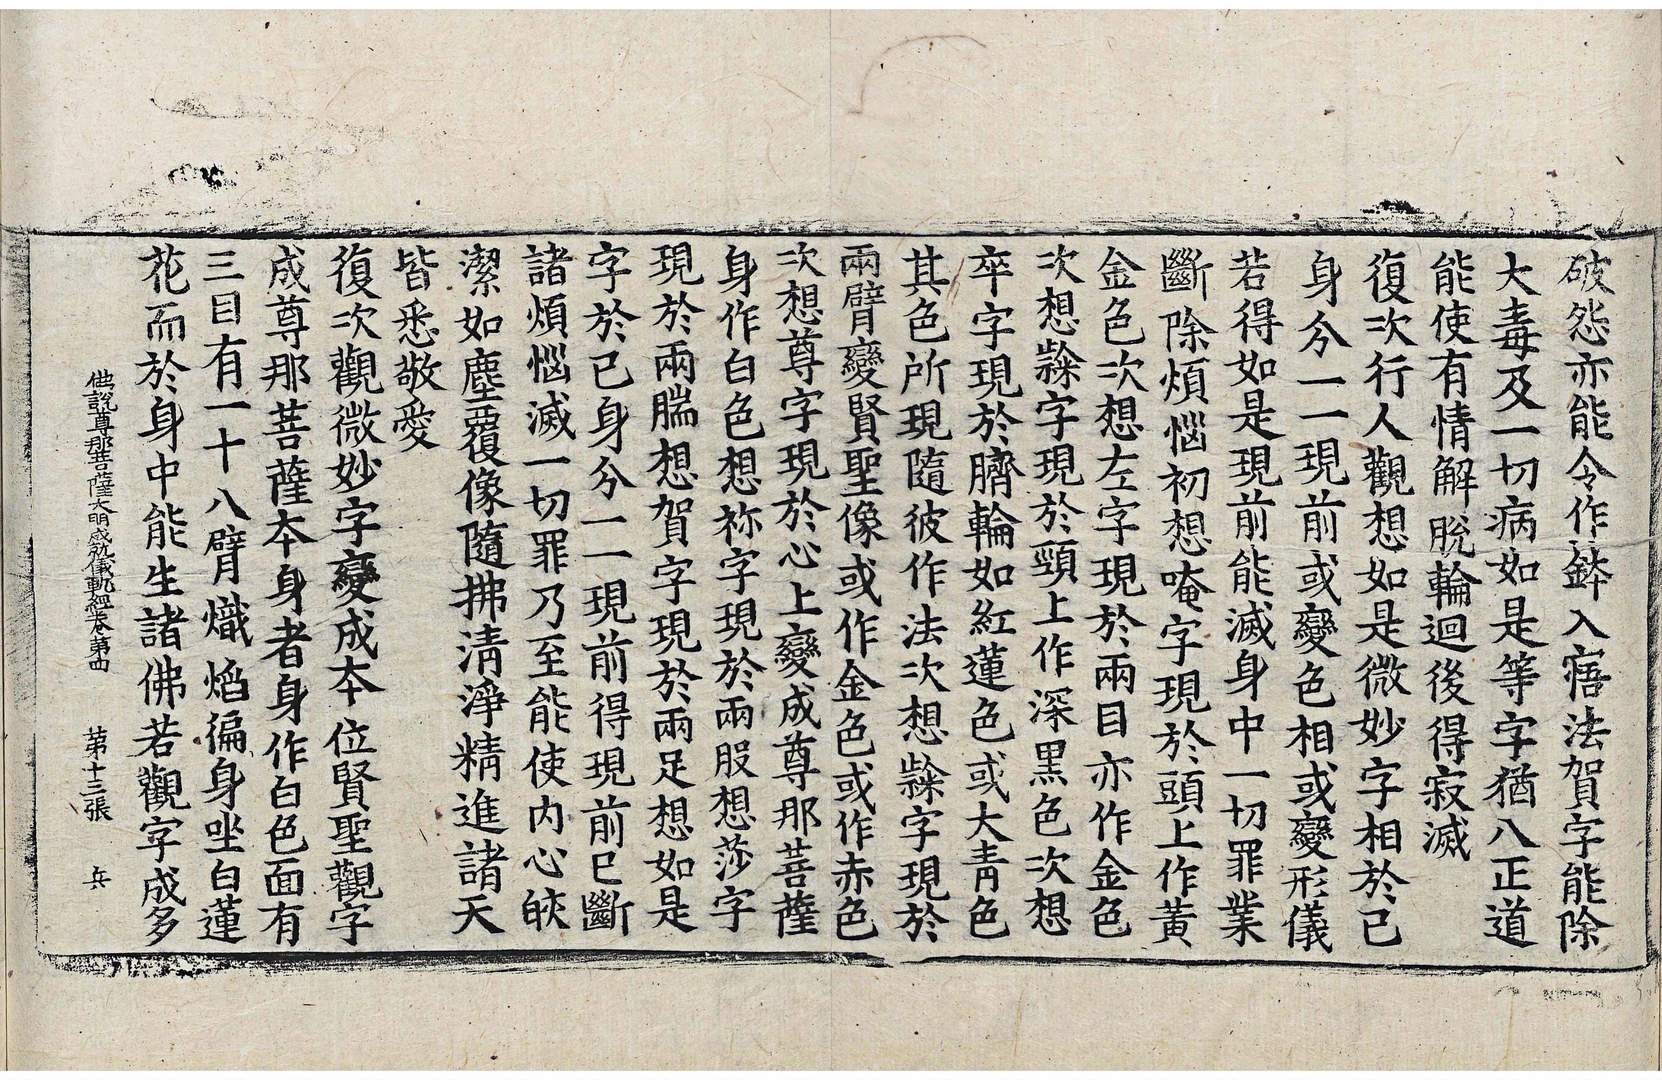 破怨亦能令作鉢入寤法賀字能除
大毒及一切病如是等字猶八正道
能使有情解脫輪迴後得寂滅
復次行人觀想如是微妙字相於已
身分一一現前或變色相或變形儀
若得如是現前能滅身中一切罪業
斷除煩惱初想唵字現於頭上作黃
金色次想左字現於兩目亦作金色
次想㘑字現於頸上作深黑色次想
卒字現於臍輪如紅蓮色或大青色
其色所現隨彼作法次想㘑字現於
兩臂變賢聖像或作金色或作赤色
次想尊字現於心上變成尊那菩薩
身作白色想祢字現於兩股想莎字
現於兩腨想賀字現於兩足想如是
字於已身分一一現前得現前已斷
諸煩惱滅一切罪乃至能使內心皎
潔如塵覆像隨拂清淨精進諸天
皆悉敬愛
復次觀微妙字變成本位賢聖觀字
成尊那菩薩本身者身作白色面有
三目有一十八臂熾焰徧身坐白蓮
花而於身中能生諸佛若觀字成多
佛說尊那菩薩大明成就儀軌經卷第四 第十三張 兵